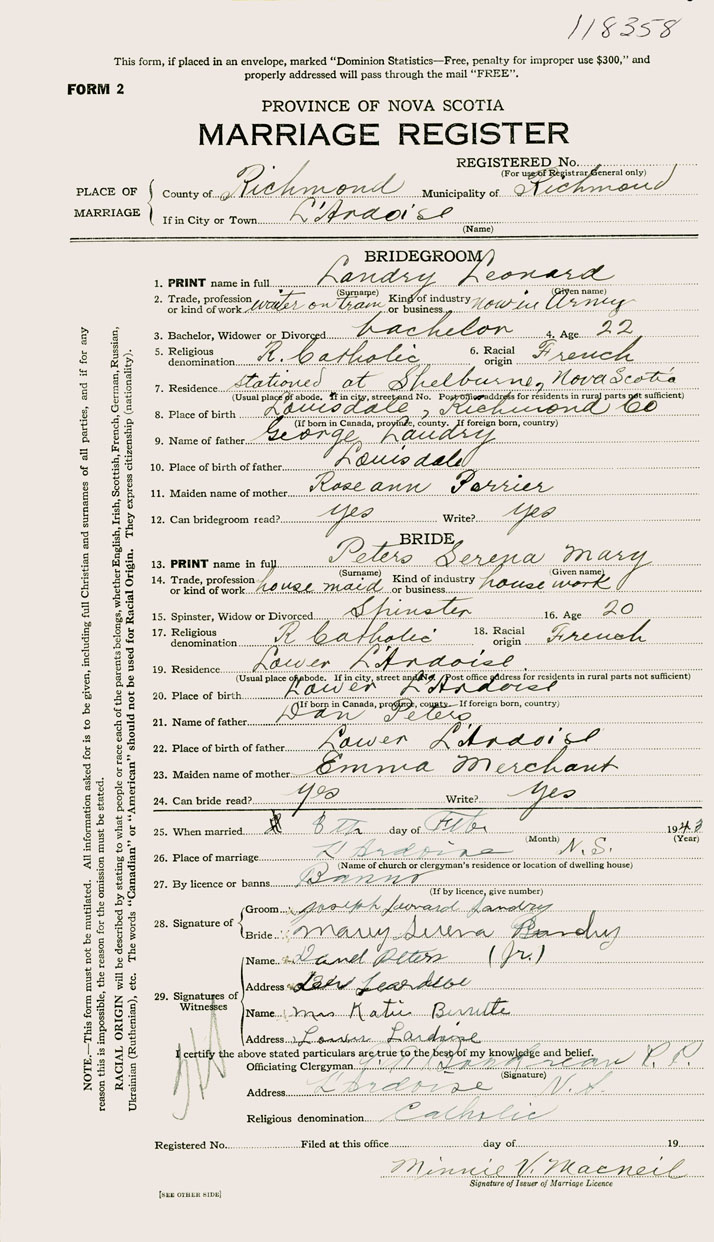 118358
This form, if placed in an envelope, marked "Dominion Statistics—Free, penalty for improper use $300," and
properly addressed will pass through the mail "FREE".
FORM 2
PROVINCE OF NOVA SCOTIA
MARRIAGE REGISTER
REGISTERED No.
(For use of Registrar General only)
PLACE OF MARRIAGE
County of Richmond Municipality of Richmond
If in City or Town L'Ardoise
(Name)
BRIDEGROOM
1. PRINT name in full Landry Leonard
(Surname) (Given name)
2. Trade, profession or kind of work waiter on train Kind of industry or business now in Army
3. Bachelor, Widower or Divorced bachelor 4. Age 22
5. Religious denomination R. Catholic 6. Racial origin French
7. Residence stationed at Shelburne, Nova Scotia
(Usual place of abode. If in city, street and No. Post office address for residents in rural parts not sufficient)
8. Place of birth Louisdale, Richmond Co
(If born in Canada, province, county. If foreign born, country)
9. Name of father George Landry
10. Place of birth of father Louisdale
11. Maiden name of mother Roseann Perrier
12. Can bridegroom read? yes Write? yes
BRIDE
13. PRINT name in full Peters Serena Mary
(Surname) (Given name)
14. Trade, profession or kind of work house maid Kind of industry or business house work
15. Spinster, Widow or Divorced Spinster 16. Age 20
17. Religious denomination R Catholic 18. Racial origin French
19. Residence Lower L'Ardoise
(Usual place of abode. If in city, street and No. Post office address for residents in rural parts not sufficient)
20. Place of birth Lower L'Ardoise
(If born in Canada, province, county. If foreign born, country)
21. Name of father Dan Peters
22. Place of birth of father Lower L'Ardoise
23. Maiden name of mother Emma Merchant
24. Can bride read? yes Write? yes
25. When married 8th day of Feb 1943
(Month) (Year)
26. Place of marriage L'Ardoise N.S.
(Name of church or clergyman's residence or location of dwelling house)
27. By licence or banns Banns
(If by licence, give number)
28. Signature of
Groom Joseph Leonard Landry
Bride Mary Serena Landry
29. Signatures of Witnesses
Name Peters (Jr.)
Address
Name Mrs Katie
Address Lower Lardoise
I certify the above stated particulars are true to the best of my knowledge and belief.
Officiating Clergyman P.P.
(Signature)
Address L'Ardoise N.S.
Religious denomination Catholic
Registered No. Filed at this office day of 19
Minnie V. Macneil
Signature of Issuer of Marriage Licence
[SEE OTHER SIDE]
NOTE.—This form must not be mutilated. All information asked for is to be given, including full Christian and surnames of all parties, and if for any
reason this is impossible, the reason for the omission must be stated.
RACIAL ORIGIN will be described by stating to what people or race each of the parents belongs, whether English, Irish, Scottish, French, German, Russian,
Ukrainian (Ruthenian), etc. The words "Canadian" or "American" should not be used for Racial Origin. They express citizenship (nationality).